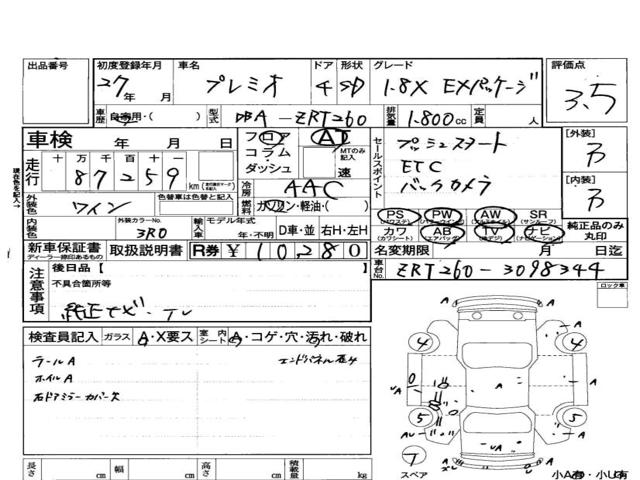 出品番号 初度登録年月 車名 ドア 形状 グレード 評価点
27年 月 プレミオ 4 SD 1.8X EXパッケージ 3.5
車歴 自家用・( ) 型式 DBA-ZRT260 排気量 1.800cc 定員 人
車検 年 月 日 フロア AT
コラム MTのみ記入
ダッシュ 速
走行 十 万 千 百 十 一
87259 km
セールスポイント プッシュスタート
ETC
バックカメラ
[外装]
[内装]
冷房 AAC
外装色 ワイン 色替車は色替と記入 燃料 ガソリン・軽油・( )
PS PW AW SR
(パワステ) (パワーウィンドウ) (アルミホイル) (サンルーフ)
内装色 外装カラーNo. 3R0 輸入車 モデル年式 年・不明 D車・並 右H・左H
カワ AB TV ナビ
(カワシート) (エアバッグ) (ナビゲーション)
純正品のみ丸印
新車保証書 取扱説明書 R券 ¥10,280
ディーラー捺印あるもの
名変期限 月 日迄
車台No. ZRT260-3098344
現在色を記入→
注意事項 後日品【 】
不具合箇所等
純正ナビ・TV
ロック車
検査員記入 ガラス A・X要ス 室内シート A・コゲ・穴・汚れ・破れ
テールA エンドパネル右ヶ
ホイルA
右ドアミラーカバー欠
4 4
A A
UA 0 A
5 5
AU A
UA A
スペア 小A有・小U有
長さ cm 幅 cm 高さ cm 積載量 kg